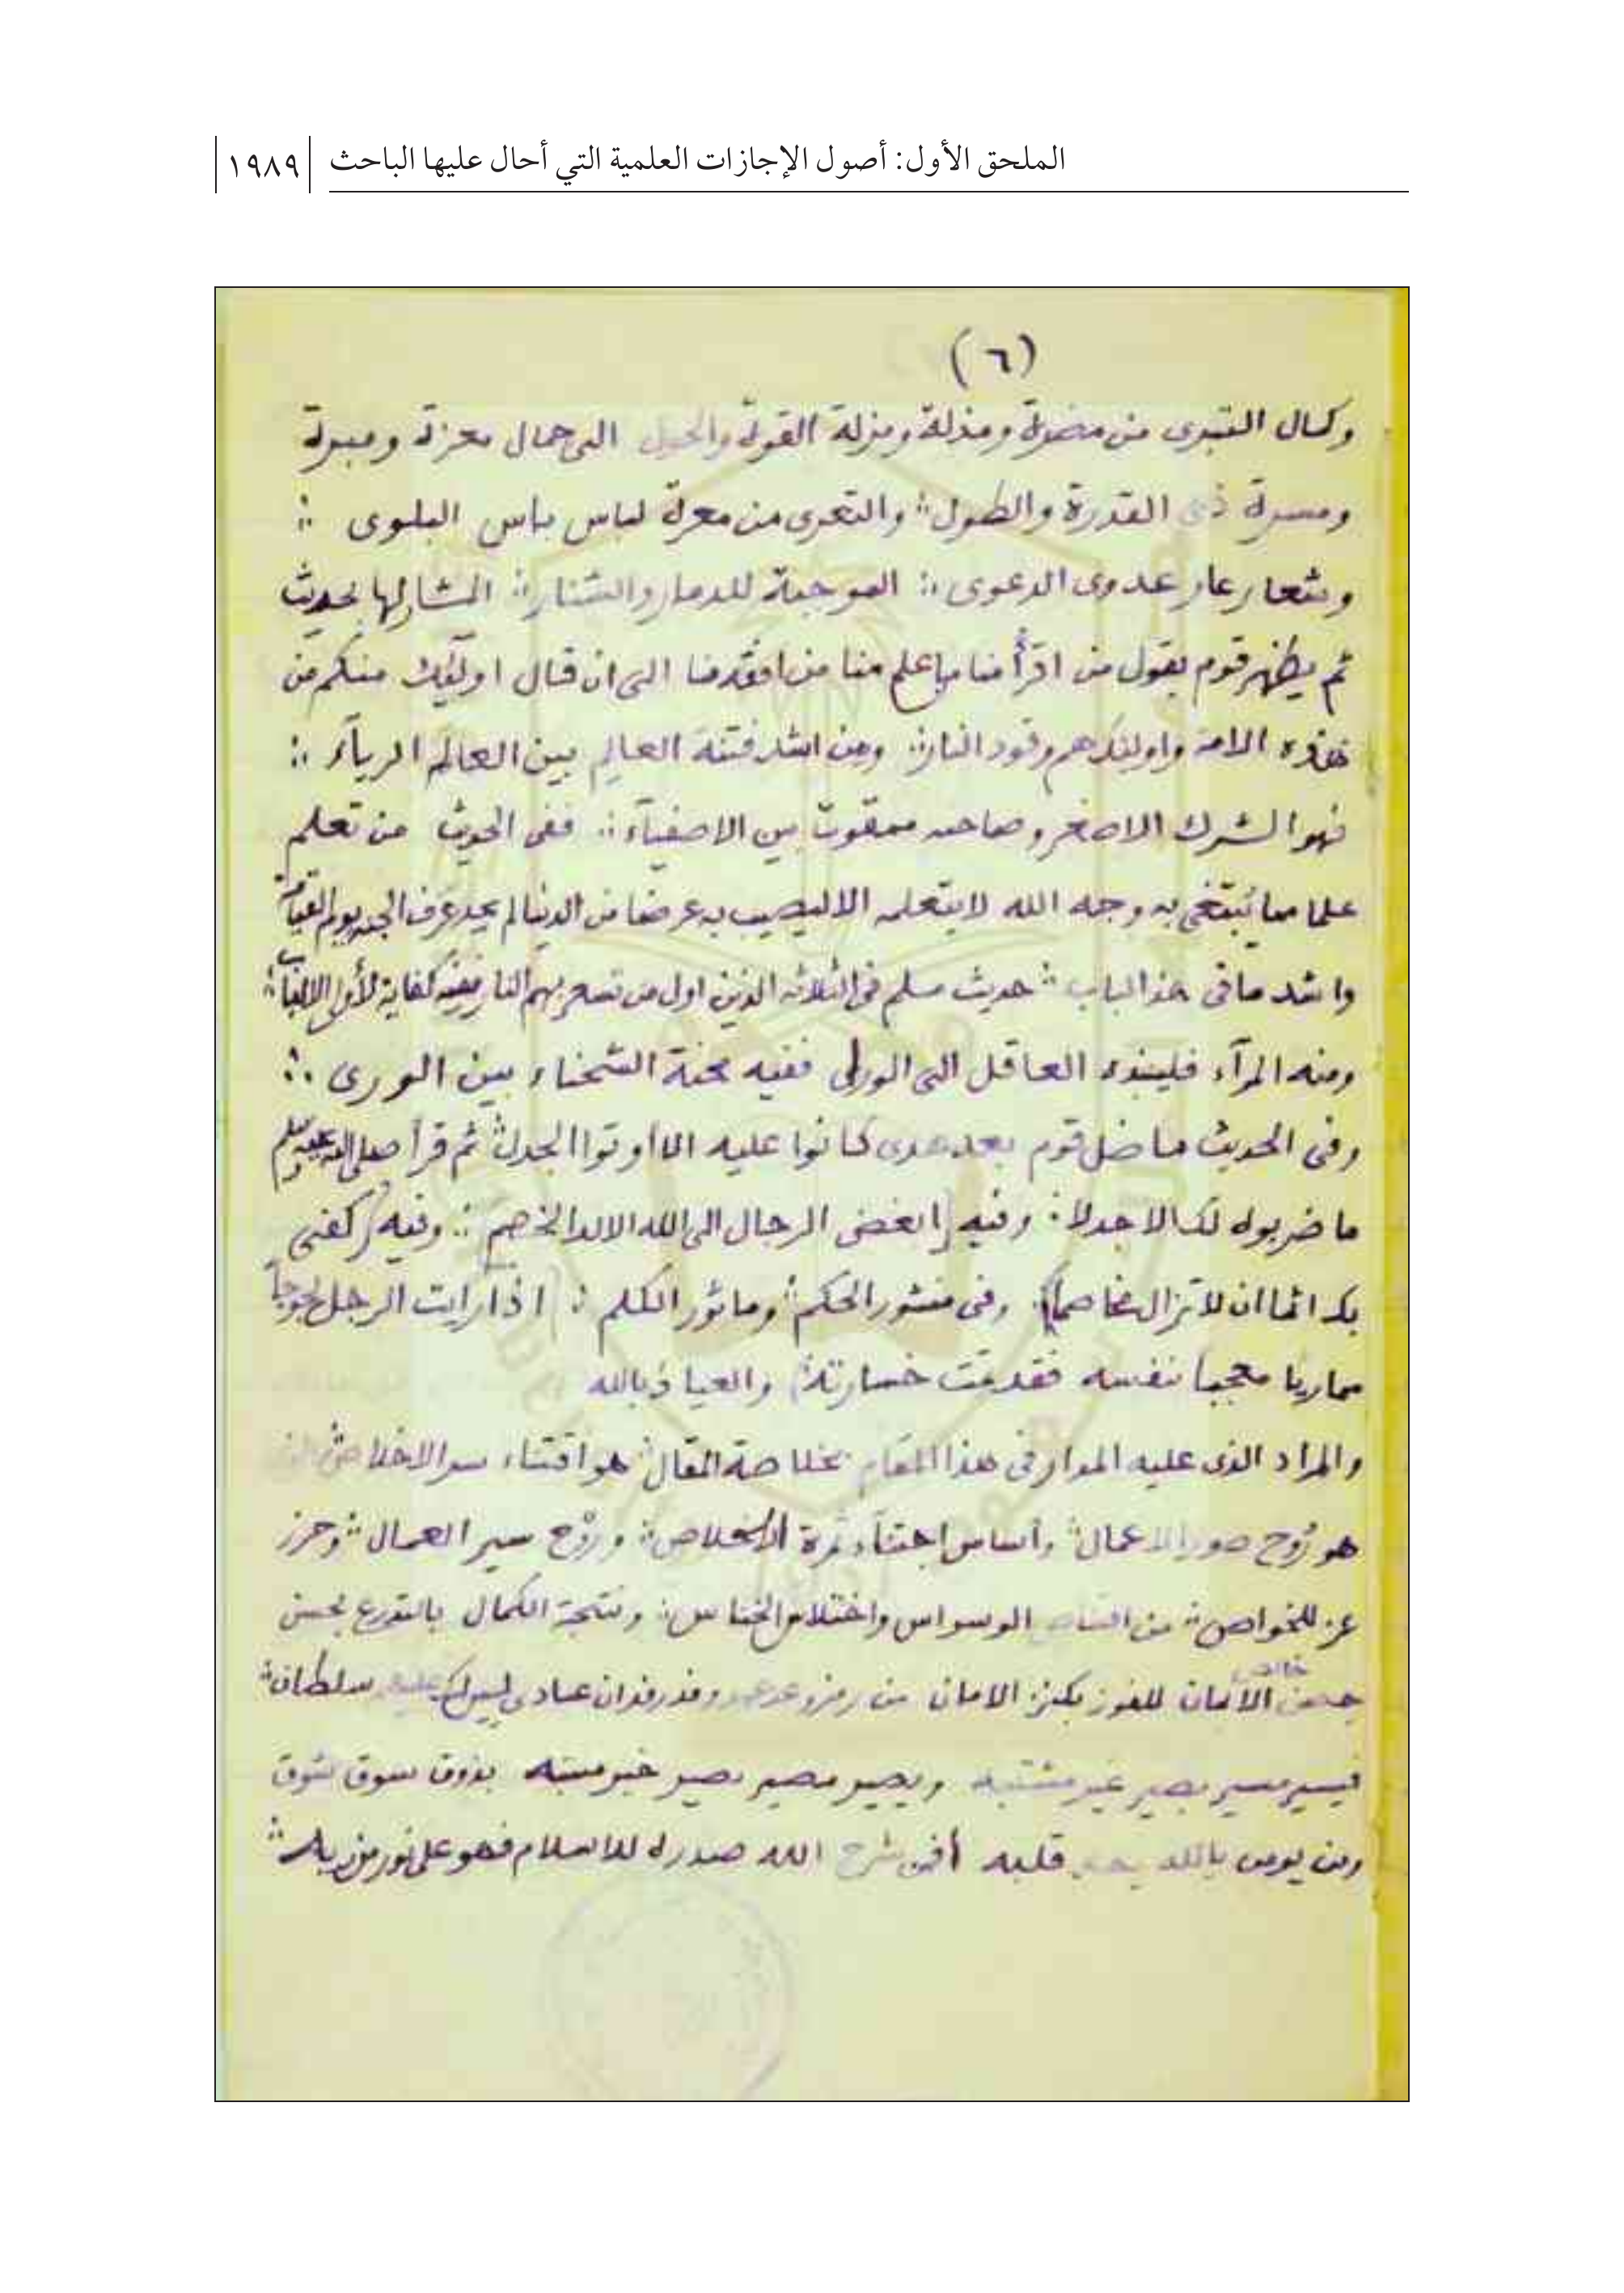 الملحق الأول: أصول الإجازات العلمية التي أحال عليها الباحث ١٩٨٩
(٦)
وكمال التبرى من مضرة ومذلة ومزلة القوة والحول الى جمال معزة ومبرة
ومسرة ذى القدرة والطول ؛ والتعرى من معرة لباس باس البلوى ؛
وشعار عار عدوى الدعوى ؛ الموجبة للدمار والشنار ؛ المشار لها بحديث
ثم يظهر قوم يقول من اقرأ منا من اعلم منا من افقه منا الى ان قال اولئك منكم من
هذه الامة واولئك هم وقود النار ؛ ومن اشد فتنة العالم بين العالم الرياء ؛
فهو الشرك الاصغر وصاحبه ممقوت بين الاصفياء ؛ ففى الحديث من تعلم
علما مما يبتغى به وجه الله لا يتعلمه الا ليصيب به عرضا من الدنيا لم يجد عرف الجنة يوم القيامة
واشد ما فى هذا الباب ؛ حديث مسلم فى الثلاثة الذين اول من تسعر بهم النار ففيه كفاية لأولى الالباب ؛
ومنه المرآء فلينبذه العاقل الى الورا ففيه محنة الشحناء بين الورى ؛
وفى الحديث ما ضل قوم بعد هدى كانوا عليه الا اوتوا الجدل ؛ ثم قرأ صلى الله عليه وسلم
ما ضربوه لك الا جدلا ؛ وفيه ابغض الرجال الى الله الالد الخصم ؛ وفيه كفى
بك اثما ان لا تزال مخاصما ؛ وفى منثور الحكم ؛ وماثور الكلم ؛ اذا رايت الرجل لجوجاً
مماريا معجبا بنفسه فقد تمت خسارته ؛ والعياذ بالله
والمراد الذى عليه المدار فى هذا المقام بخلاصة المقال ؛ هو اقتناء سر الاخلاص
هو رُوح صور الاعمال ؛ وأساس اجتناء ثمرة الاخلاص ؛ ورَوْح سير العمال ؛ وحرز
عز للخواص ؛ من الوسواس واختلاس الخناس ؛ ونتيجة الكمال بالتدرع بحسن
حصن خالص الأيمان للفوز بكنز الامان من رمز ان عبادى ليس لك عليهم سلطان ؛
فيسير مسير بصير غير مشتبه ويصير مصير بصير خبير منتبه بذوق سوق شوق
ومن يومن بالله يهد قلبه أفمن شرح الله صدره للاسلام فهو على نور من ربه ؛